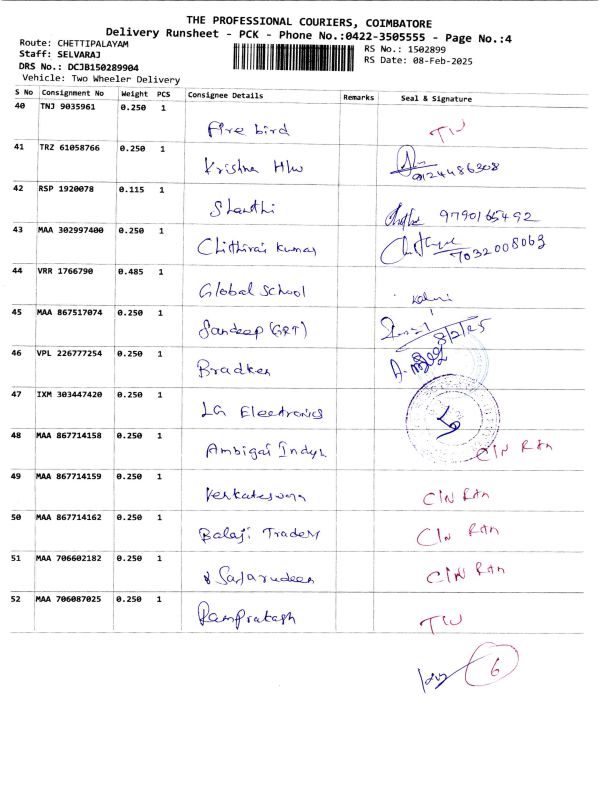 THE PROFESSIONAL COURIERS, COIMBATORE
Delivery Runsheet - PCK - Phone No.:0422-3505555 - Page No.:4
Route: CHETTIPALAYAM
RS No.: 1502899
Staff: SELVARAJ
RS Date: 08-Feb-2025
DRS No.: DCJB150289904
Vehicle: Two Wheeler Delivery
S No Consignment No Weight PCS Consignee Details Remarks Seal & Signature
40 TNJ 9035961 0.250 1
Fire bird
41 TRZ 61058766 0.250 1
Krishna H/w
9124486308
42 RSP 1920078 0.115 1
Shanthi 9790165492
43 MAA 302997400 0.250 1
Chithirai Kumar 7032008063
44 VRR 1766790 0.485 1
Global School
45 MAA 867517074 0.250 1
Sandeep (GRT) 8/2/25
46 VPL 226777254 0.250 1
Bradken
47 IXM 303447420 0.250 1
LG Electronics
48 MAA 867714158 0.250 1
Ambigai CIN RAM
49 MAA 867714159 0.250 1
Venkateswara CIN RAM
50 MAA 867714162 0.250 1
Balaji Traders CIN RAM
51 MAA 706602182 0.250 1
CIN RAM
52 MAA 706087025 0.250 1
Ramprakash
6